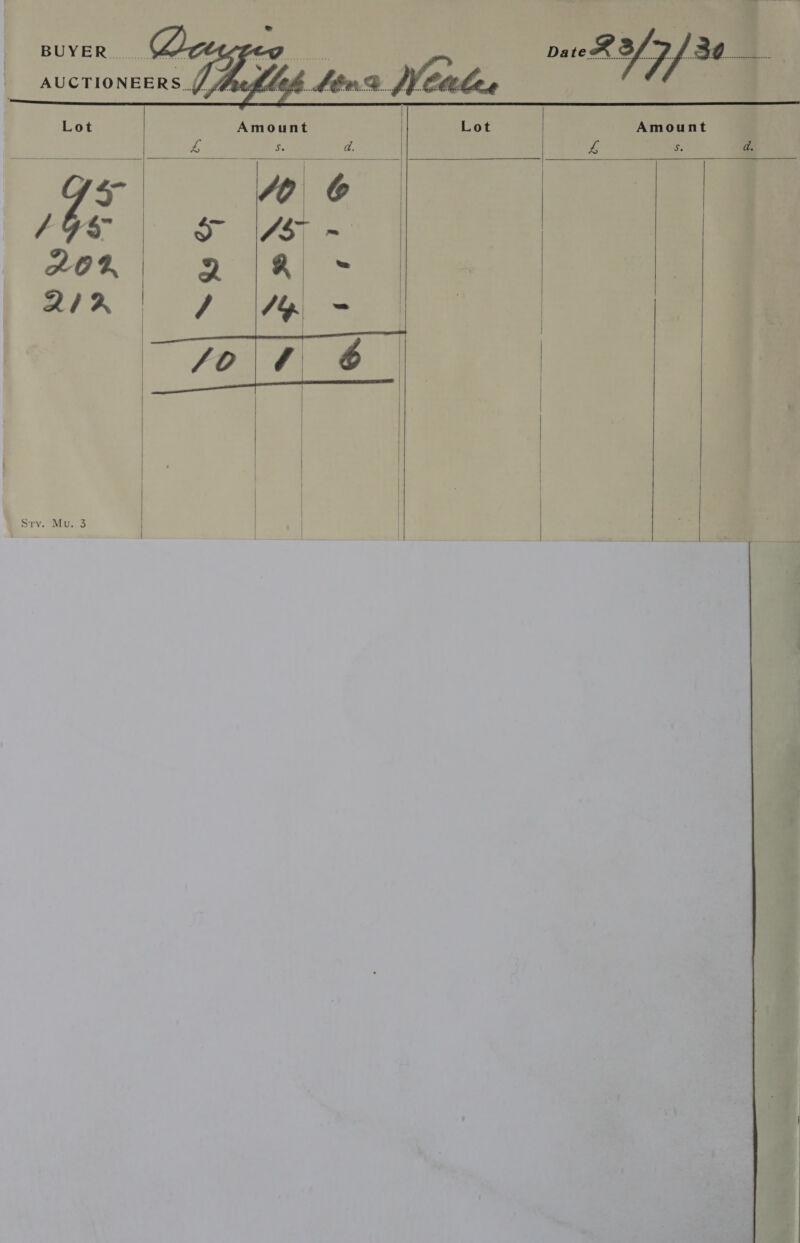 BUYER
Date 23/7/30
AUCTIONEERS Phillips Son & Neale
Lot Amount Lot Amount
£ s. d. £ s. d.
95 10 6
195 5 15 -
202 2 2 -
212 1 14 -
10 1 6
Srv. Mu. 3